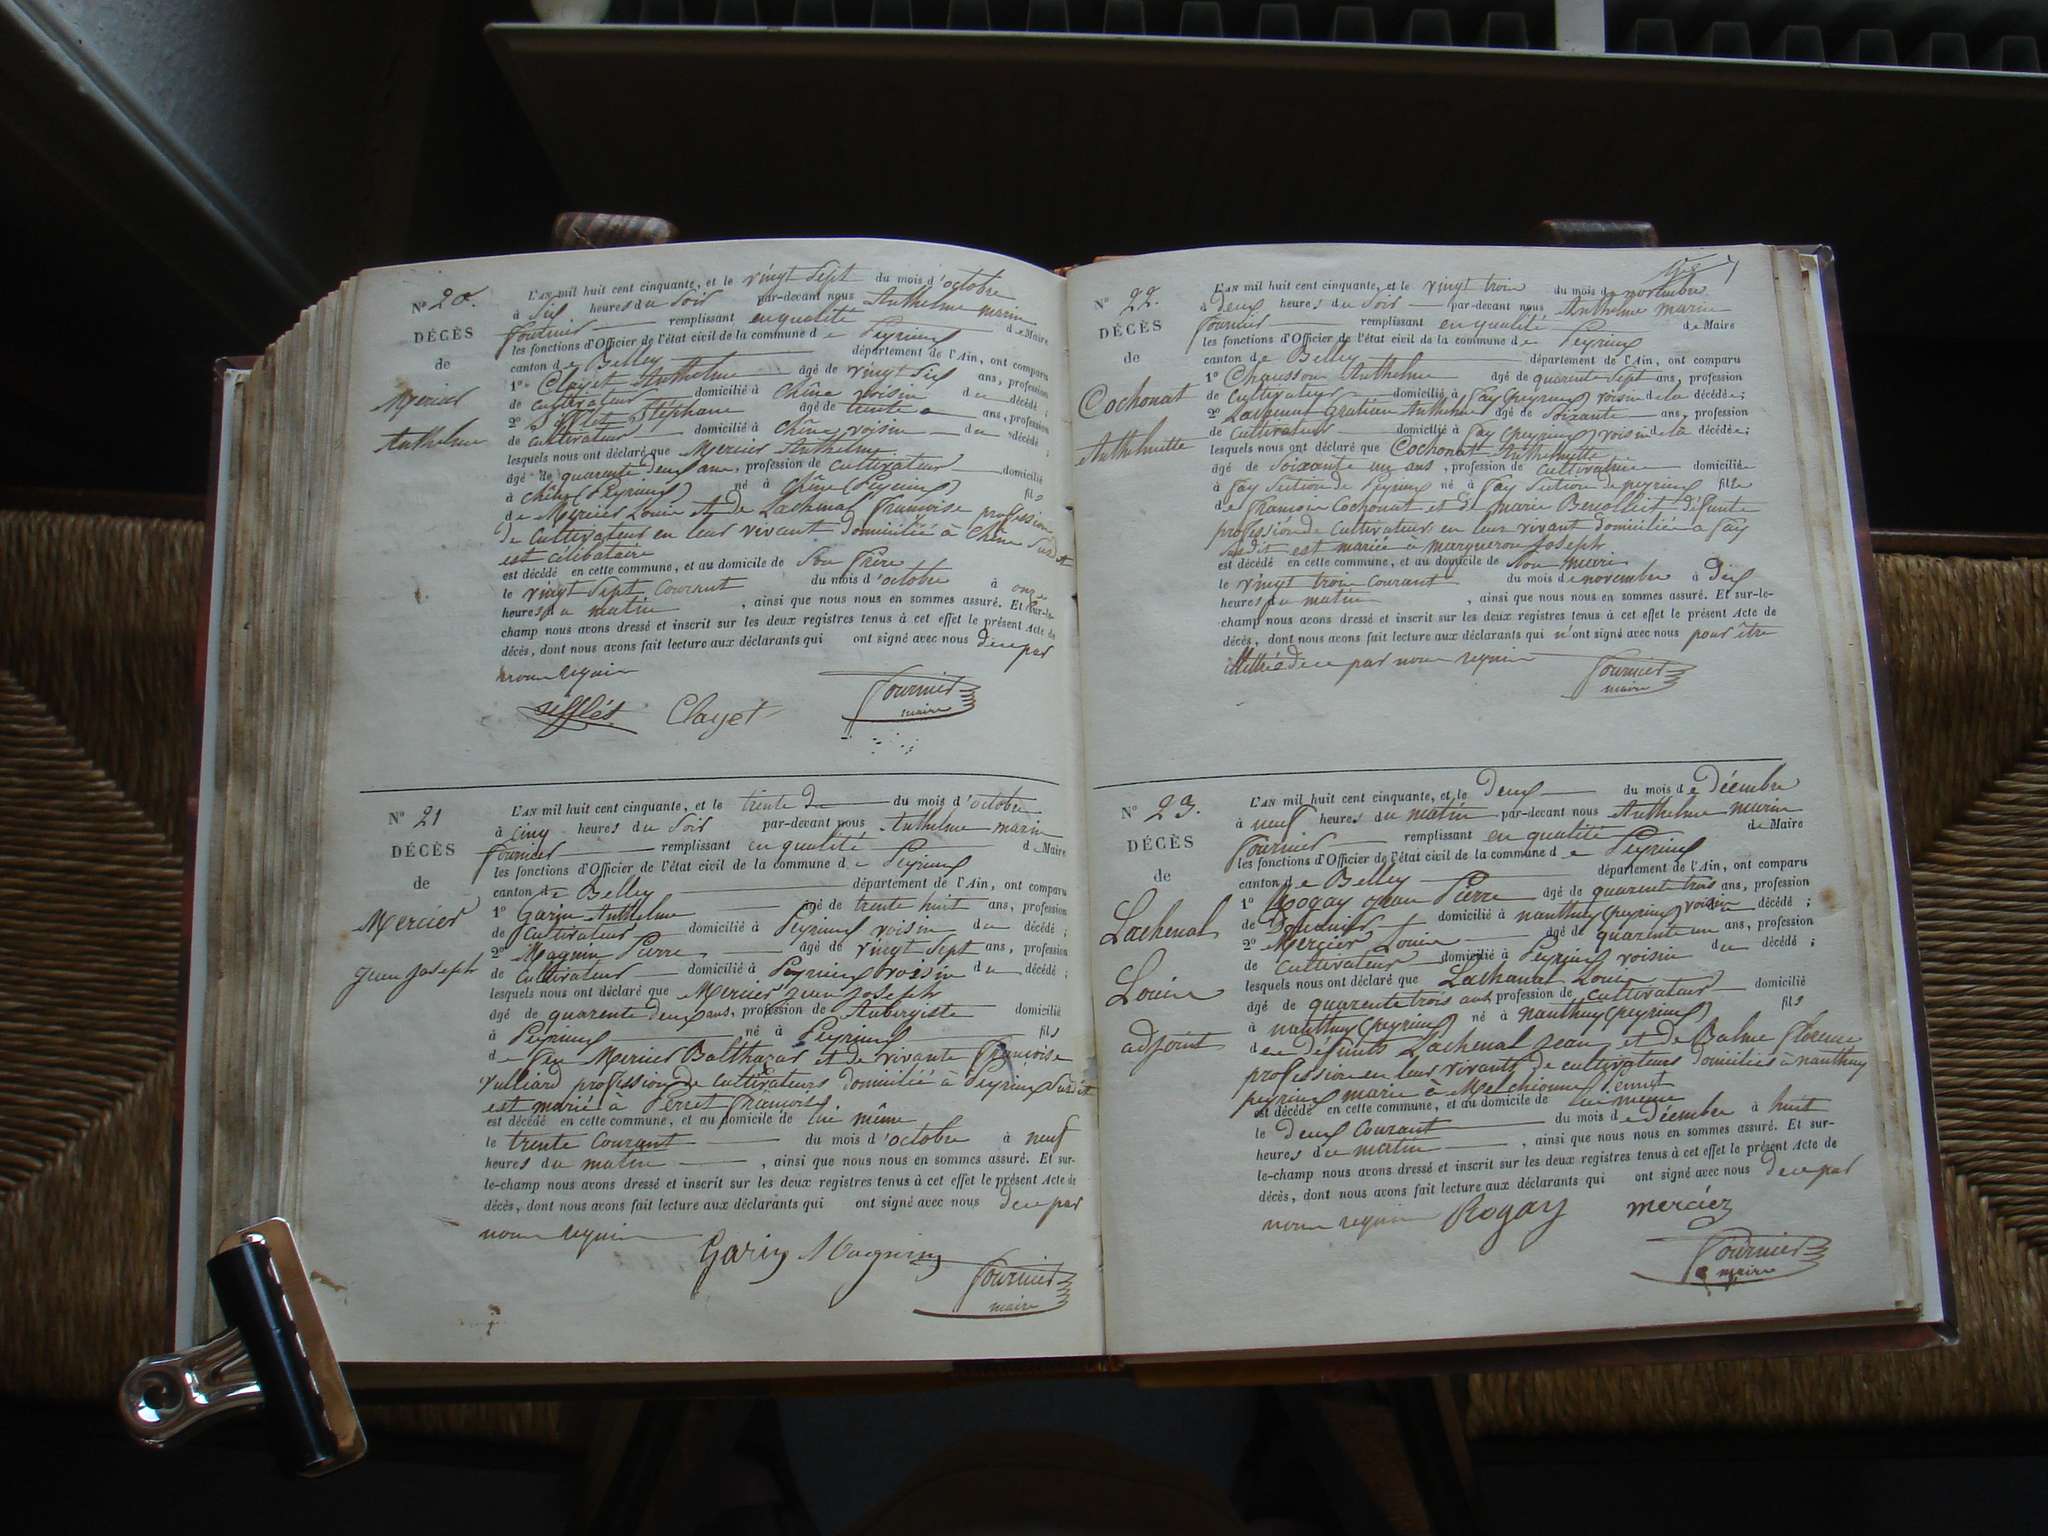 N° 20.
DÉCÈS
de
Mercier
Anthelme
L'AN mil huit cent cinquante, et le vingt sept du mois d'octobre
à six heures du soir par-devant nous Anthelme marin
Fournier remplissant en qualité de Maire
les fonctions d'Officier de l'état civil de la commune de Peyrieux
canton de Belley département de l'Ain, ont comparu
1° Clayet Anthelme âgé de vingt six ans, profession
de cultivateur domicilié à Chêne voisin du décédé;
2° Stéphane âgé de trente ans, profession
de cultivateur domicilié à Chêne voisin du décédé;
lesquels nous ont déclaré que Mercier Anthelme
âgé de quarente deux ans, profession de cultivateur domicilié
à Chêne (Peyrieux) né à Chêne (Peyrieux) fils
de Mercier Louis et de Lachenal Françoise profession
de cultivateur en leur vivant domicilié à Chêne susdit
est célibataire
est décédé en cette commune, et au domicile de son frère
le vingt sept courant du mois d'octobre à onze
heures du matin, ainsi que nous nous en sommes assuré. Et sur-le-
champ nous avons dressé et inscrit sur les deux registres tenus à cet effet le présent Acte de
décès, dont nous avons fait lecture aux déclarants qui ont signé avec nous de ce par
nous requis
sifflét Clayet Fournier
maire
N° 21
DÉCÈS
de
Mercier
jean joseph
L'AN mil huit cent cinquante, et le trente du mois d'octobre
à cinq heures du soir par-devant nous Anthelme marin
Fournier remplissant en qualité de Maire
les fonctions d'Officier de l'état civil de la commune de Peyrieux
canton de Belley département de l'Ain, ont comparu
1° Garin Anthelme âgé de trente huit ans, profession
de cultivateur domicilié à Peyrieux voisin du décédé;
2° Magnin Pierre âgé de vingt sept ans, profession
de cultivateur domicilié à Peyrieux voisin du décédé;
lesquels nous ont déclaré que Mercier jean joseph
âgé de quarente deux ans, profession de Aubergiste domicilié
à Peyrieux né à Peyrieux fils
de feu Mercier Balthazar et de vivante Françoise
Vulliard profession de cultivateurs domicilié à Peyrieux susdit
est marié à Perret Françoise
est décédé en cette commune, et au domicile de lui même
le trente courant du mois d'octobre à neuf
heures du matin, ainsi que nous nous en sommes assuré. Et sur-
le-champ nous avons dressé et inscrit sur les deux registres tenus à cet effet le présent Acte de
décès, dont nous avons fait lecture aux déclarants qui ont signé avec nous de ce par
nous requis
Garin Magnin Fournier
maire
N° 22.
DÉCÈS
de
Cochonat
Anthelmette
L'AN mil huit cent cinquante, et le vingt trois du mois de novembre
à deux heures du soir par-devant nous Anthelme marin
Fournier remplissant en qualité de Maire
les fonctions d'Officier de l'état civil de la commune de Peyrieux
canton de Belley département de l'Ain, ont comparu
1° Chausson Anthelme âgé de quarente sept ans, profession
de cultivateur domicilié à Fay (peyrieux) voisin de la décédée;
2° Lachenal Anthelme âgé de soixante ans, profession
de cultivateur domicilié à Fay (peyrieux) voisin de la décédée;
lesquels nous ont déclaré que Cochonat Anthelmette
âgé de soixante un ans, profession de cultivatrice domiciliée
à Fay section de Peyrieux né à Fay section de peyrieux fille
de François Cochonat et de marie défunte
profession de cultivateur en leur vivant domiciliée à Fay
susdit est mariée à marqueron joseph
est décédé en cette commune, et au domicile de son mari
le vingt trois courant du mois de novembre à dix
heures du matin, ainsi que nous nous en sommes assuré. Et sur-le-
champ nous avons dressé et inscrit sur les deux registres tenus à cet effet le présent Acte de
décès, dont nous avons fait lecture aux déclarants qui n'ont signé avec nous pour être
de ce par nous requis Fournier
maire
N° 23.
DÉCÈS
de
Lachenal
Louis
adjoint
L'AN mil huit cent cinquante, et le deux du mois de décembre
à neuf heures du matin par-devant nous Anthelme marin
Fournier remplissant en qualité de Maire
les fonctions d'Officier de l'état civil de la commune de Peyrieux
canton de Belley département de l'Ain, ont comparu
1° Rogay jean Pierre âgé de quarente trois ans, profession
de domicilié à nanthuy (peyrieux) voisin décédé;
2° Mercier Louis âgé de quarente un ans, profession
de cultivateur domicilié à Peyrieux voisin du décédé;
lesquels nous ont déclaré que Lachenal Louis
âgé de quarente trois ans profession de cultivateur domicilié
à nanthuy (peyrieux) né à nanthuy (peyrieux) fils
de défunts Lachenal jean et de Balme Florence
profession en leur vivants de cultivateurs domiciliés à nanthuy
peyrieux marié à Melchionne
est décédé en cette commune, et au domicile de lui même
le deux courant du mois de décembre à huit
heures du matin, ainsi que nous nous en sommes assuré. Et sur-
le-champ nous avons dressé et inscrit sur les deux registres tenus à cet effet le présent Acte de
décès, dont nous avons fait lecture aux déclarants qui ont signé avec nous de ce par
nous requis Rogay merciez
Fournier
maire